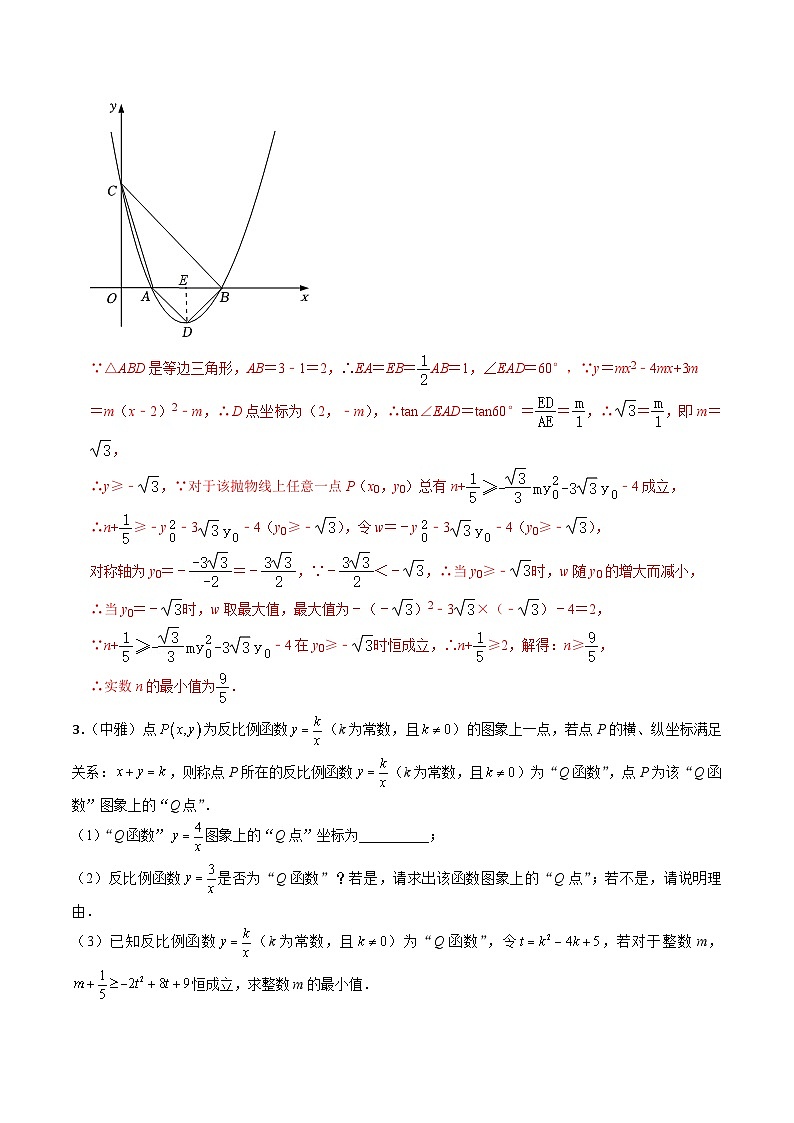 y
C
E
O
A
B
x
D
∵△ABD是等边三角形,AB=3﹣1=2,∴EA=EB=\frac{1}{2}AB=1,∠EAD=60°,∵y=mx²﹣4mx+3m
=m(x﹣2)²﹣m,∴D点坐标为(2,﹣m),∴tan∠EAD=tan60°=\frac{ED}{AE}=\frac{m}{1},∴√3=\frac{m}{1},即m=
√3,
∴y≥﹣√3,∵对于该抛物线上任意一点P(x₀,y₀)总有n+\frac{1}{5}≥-\frac{√3}{3}my₀²-3√3y₀﹣4成立,
∴n+\frac{1}{5}≥﹣y₀²﹣3√3y₀﹣4(y₀≥﹣√3),令w=﹣y₀²﹣3√3y₀﹣4(y₀≥﹣√3),
对称轴为y₀=﹣\frac{-3√3}{-2}=﹣\frac{3√3}{2},∵﹣\frac{3√3}{2}<﹣√3,∴当y₀≥﹣√3时,w随y₀的增大而减小,
∴当y₀=﹣√3时,w取最大值,最大值为﹣(﹣√3)²﹣3√3×(﹣√3)﹣4=2,
∵n+\frac{1}{5}≥-\frac{√3}{3}my₀²-3√3y₀﹣4在y₀≥﹣√3时恒成立,∴n+\frac{1}{5}≥2,解得:n≥\frac{9}{5},
∴实数n的最小值为\frac{9}{5}.
3.(中雅)点P(x,y)为反比例函数y=\frac{k}{x}(k为常数,且k≠0)的图象上一点,若点P的横、纵坐标满足
关系:x+y=k,则称点P所在的反比例函数y=\frac{k}{x}(k为常数,且k≠0)为“Q函数”,点P为该“Q函
数”图象上的“Q点”.
(1)“Q函数”y=\frac{4}{x}图象上的“Q点”坐标为__________;
(2)反比例函数y=\frac{3}{x}是否为“Q函数”?若是,请求出该函数图象上的“Q点”;若不是,请说明理
由.
(3)已知反比例函数y=\frac{k}{x}(k为常数,且k≠0)为“Q函数”,令t=k²-4k+5,若对于整数m,
m+\frac{1}{5}≥-2t²+8t+9恒成立,求整数m的最小值.